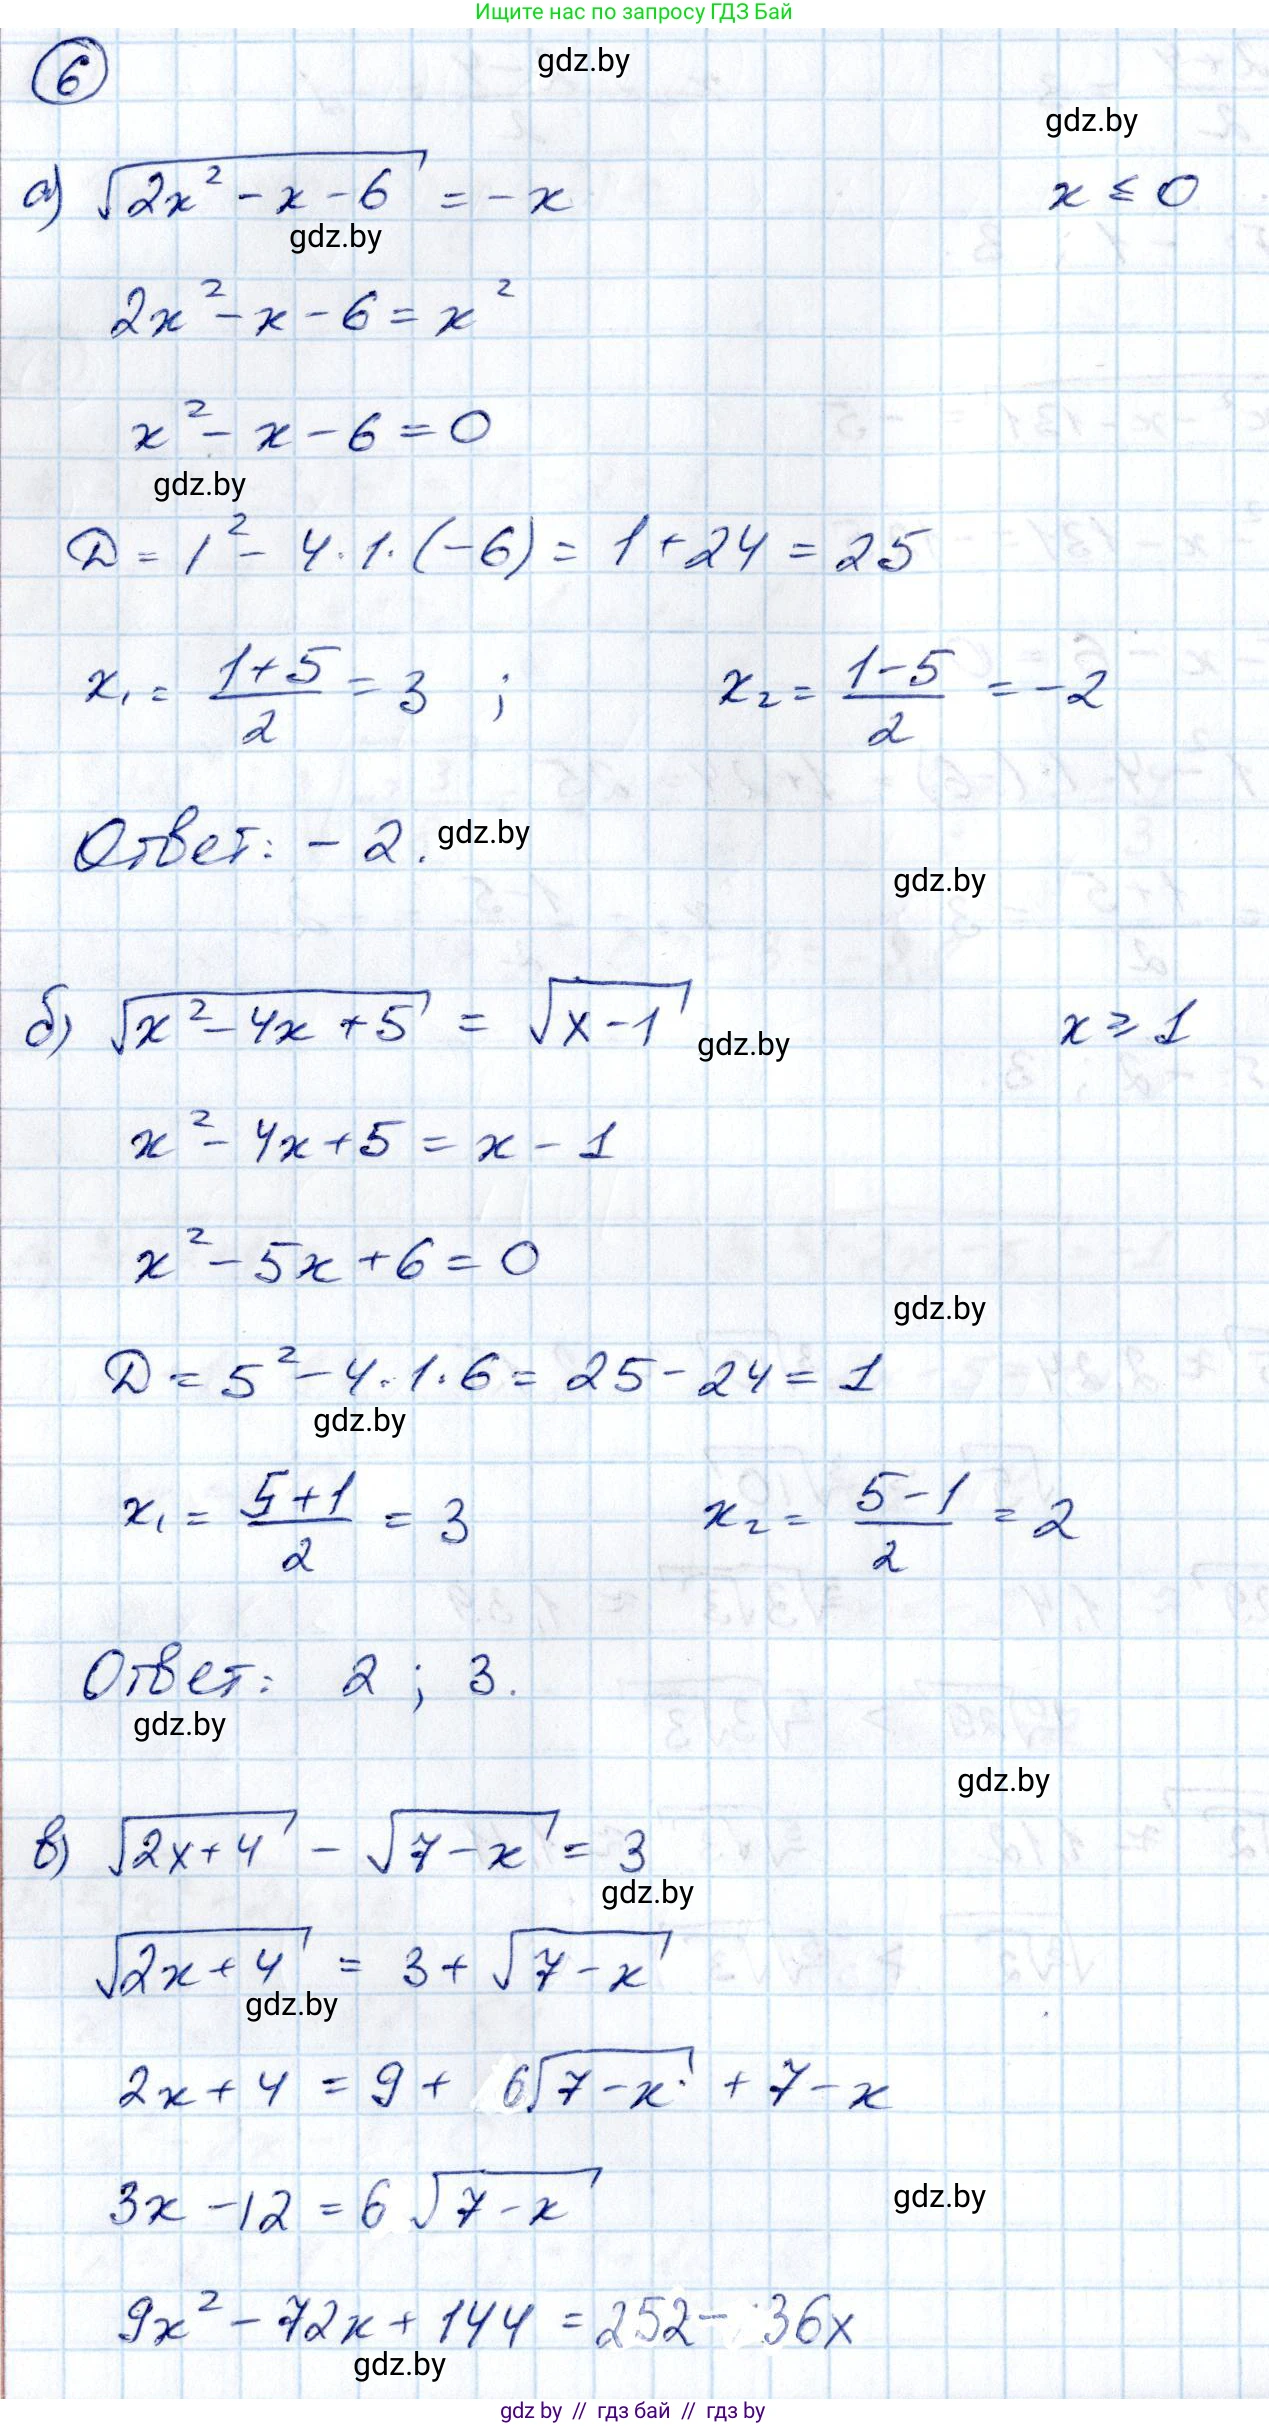 Ищите нас по запросу ГДЗ Бай
gdz.by
6
gdz.by
а) √(2x² - x - 6) = -x    x ≤ 0
gdz.by
2x² - x - 6 = x²
x² - x - 6 = 0
gdz.by
D = 1² - 4·1·(-6) = 1 + 24 = 25
x₁ = (1+5)/2 = 3 ;    x₂ = (1-5)/2 = -2
Ответ: - 2.
gdz.by
gdz.by
б) √(x² - 4x + 5) = √(x - 1)    x ≥ 1
gdz.by
x² - 4x + 5 = x - 1
x² - 5x + 6 = 0
gdz.by
D = 5² - 4·1·6 = 25 - 24 = 1
gdz.by
x₁ = (5+1)/2 = 3    x₂ = (5-1)/2 = 2
Ответ: 2 ; 3.
gdz.by
gdz.by
в) √(2x+4) - √(7-x) = 3
gdz.by
√(2x+4) = 3 + √(7-x)
gdz.by
2x + 4 = 9 + 6√(7-x) + 7 - x
3x - 12 = 6√(7-x)
gdz.by
9x² - 72x + 144 = 252 - 36x
gdz.by
gdz by // гдз бай // gdz by